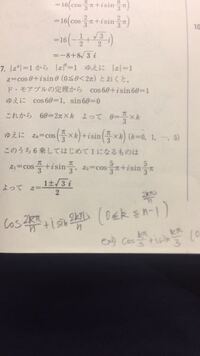 =16(cos 2/3 π + i sin 2/3 π)
=16(-1/2 + √3/2 i)
=-8+8√3 i
7. |z⁶|=1 から |z|⁶=1 ゆえに |z|=1
z=cosθ+i sinθ (0≦θ<2π) とおくと,
ド・モアブルの定理から cos6θ+i sin6θ=1
ゆえに cos6θ=1, sin6θ=0
これから 6θ=2π×k よって θ=π/3×k
ゆえに zₖ=cos(π/3×k)+i sin(π/3×k) (k=0, 1, …, 5)
このうち6乗してはじめて1になるものは
z₁=cos π/3+i sin π/3, z₅=cos 5/3 π+i sin 5/3 π
よって z=(1±√3 i)/2
cos 2kπ/n + i sin 2kπ/n (0≦k≦n-1)
2kπ/n
cos kπ/3 + i sin kπ/3 (0